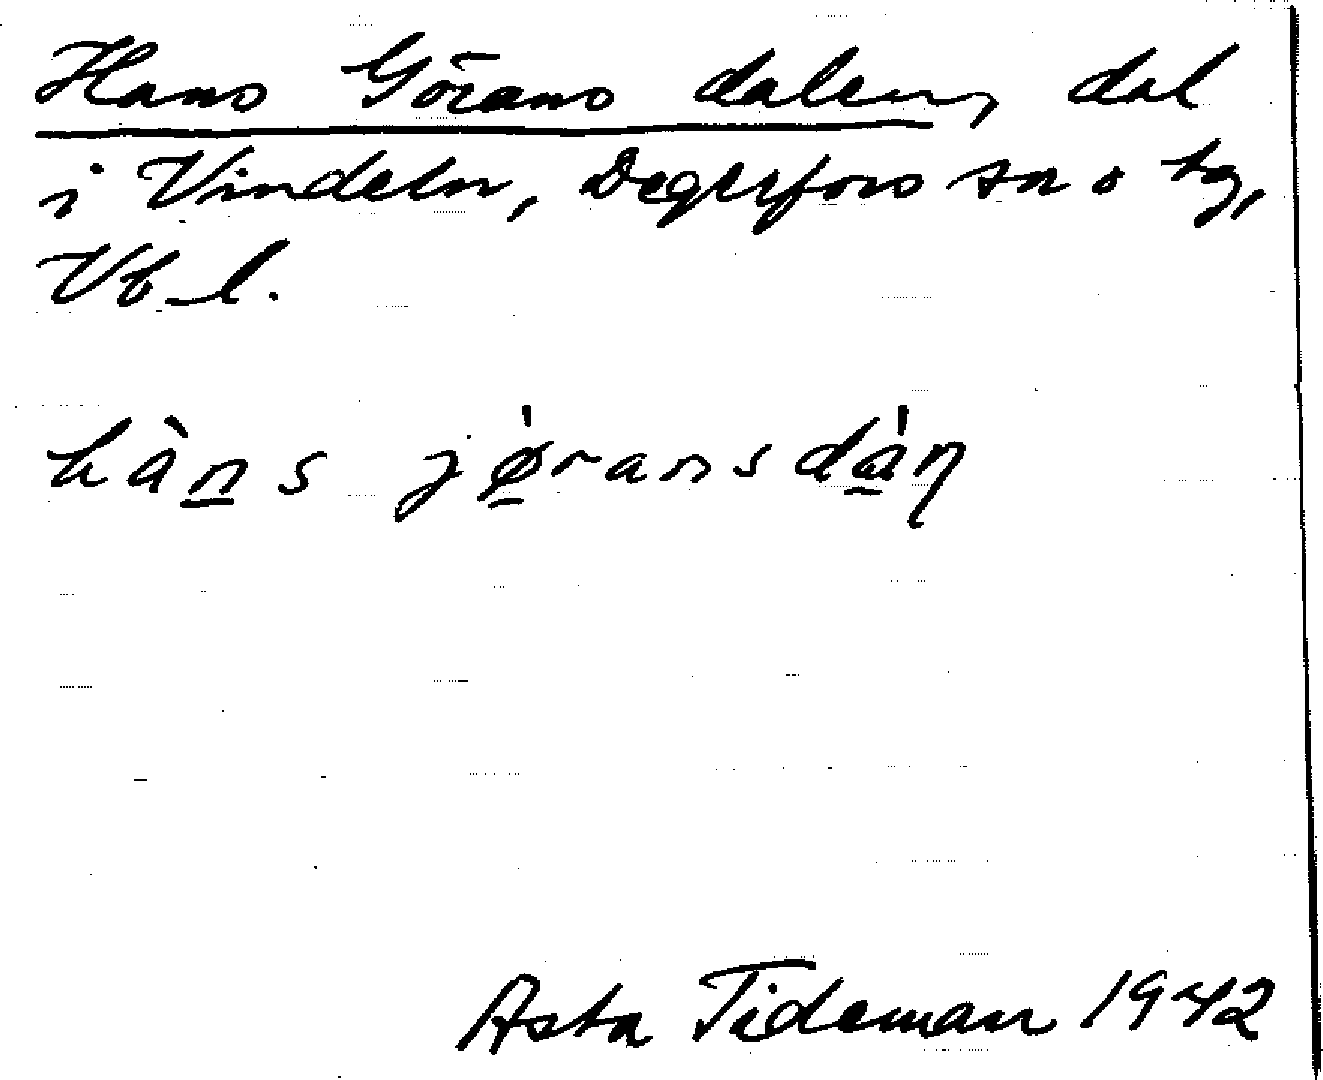 Hans Görans dalen, dal
i Vindeln, Degerfors sn o tg,
Vb l.
hàn̲s jø̲̀ransdà̲ŋ
Asta Tideman 1942